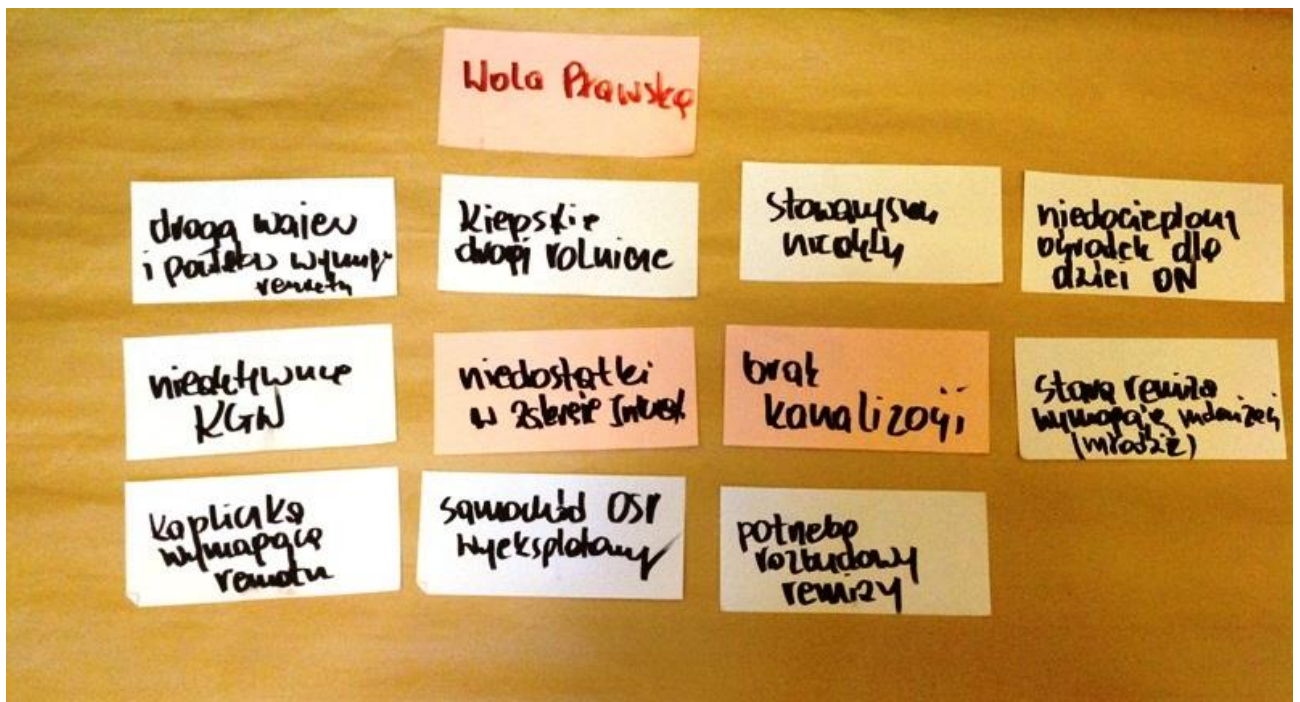 Wola Prawska
droga wojew
i powiatow wymaga
remontu
kiepskie
drogi rolnicze
stowarzyszen
niedocieplony
ogródek dla
dzieci ON
nieaktywne
KGW
niedostatki
w zakresie Internet
brak
kanalizacji
stara remiza
wymagająca
(młodzież)
kapliczka
wymagająca
remontu
samochód OSP
wyeksplotany
potrzeba
rozbudowy
remizy